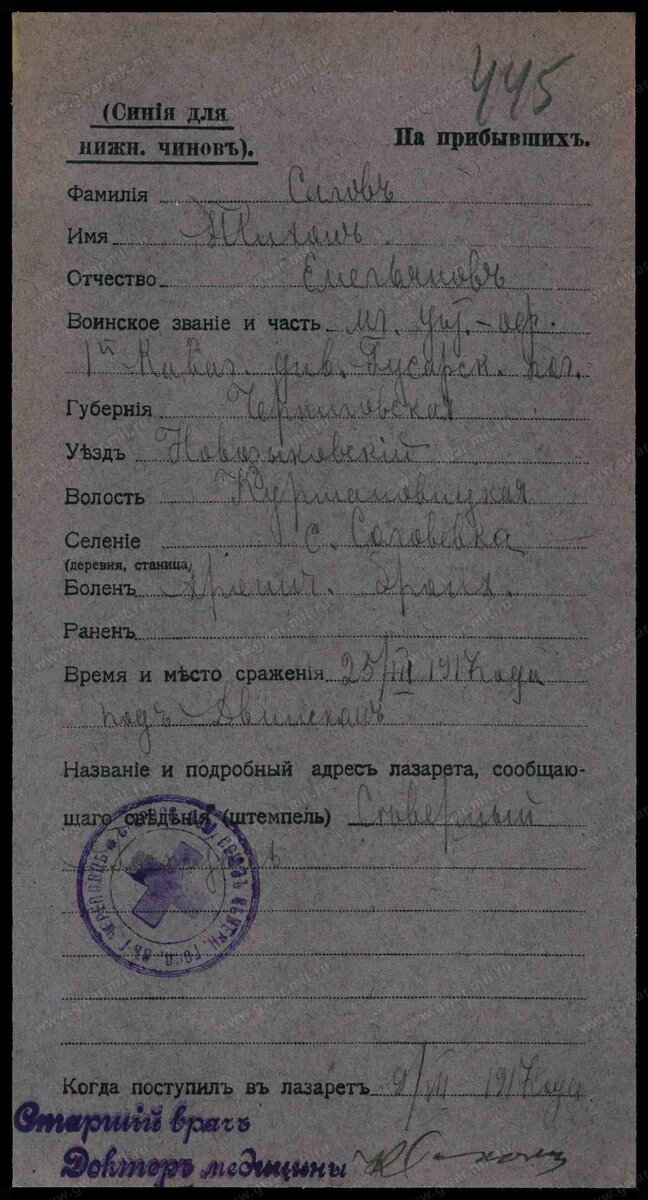 445
(Синія для
нижн. чиновъ).
На прибывшихъ.
Фамилія
Имя Тихонъ
Отчество Емельяновъ
Воинское званіе и часть мл. унт.-оф.
1й Кавал. див. Гусарск. пол.
Губернія Черниговская
Уѣздъ Новозыбковскій
Волость
Селеніе с. Соловевка
(деревня, станица)
Боленъ
Раненъ
Время и мѣсто сраженія 25/III 1917 года
подъ Двинскомъ
Названіе и подробный адресъ лазарета, сообщаю-
щаго свѣдѣнія (штемпель) Сѣверный
Когда поступилъ въ лазаретъ 9/VII 1917 года
Старшій врачъ
Докторъ медицины
www.gwar.mil.ru